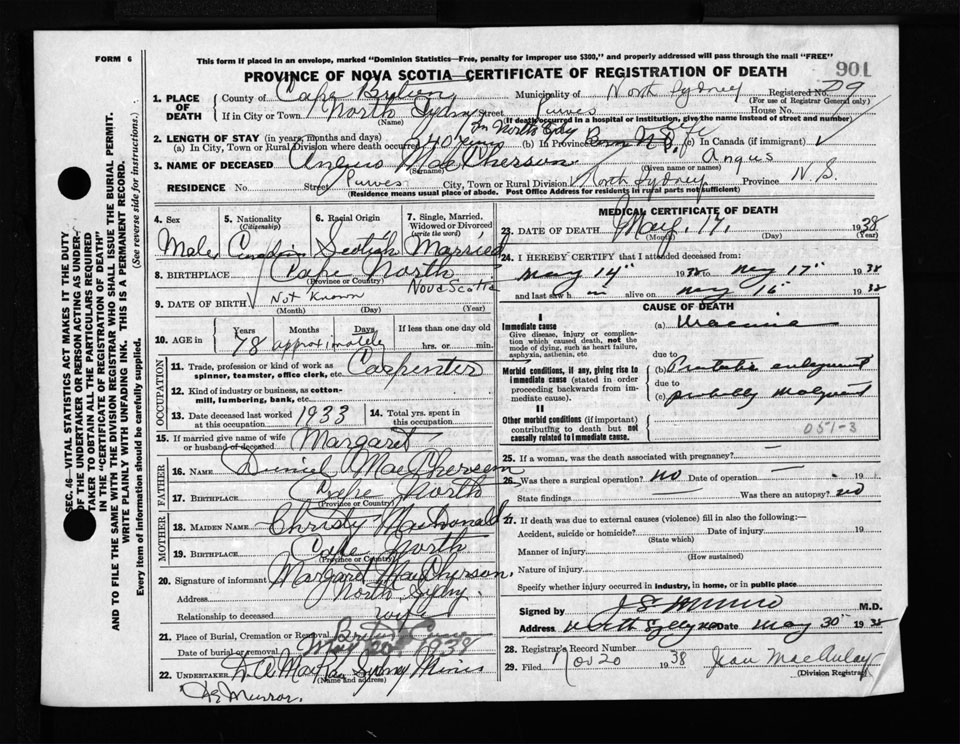 FORM 6
This form if placed in an envelope, marked "Dominion Statistics—Free, penalty for improper use $300," and properly addressed will pass through the mail "FREE"
PROVINCE OF NOVA SCOTIA—CERTIFICATE OF REGISTRATION OF DEATH
901
1. PLACE OF DEATH
County of Cape Breton Municipality of North Sydney Registered No. 79
(For use of Registrar General only)
If in City or Town North Sydney Street Purves House No.
(Name) (If death occurred in a hospital or institution, give the name instead of street and number)
2. LENGTH OF STAY (in years, months and days)
(a) In City, Town or Rural Division where death occurred 40 years (b) In Province Born N.S. Life (c) In Canada (if immigrant)
3. NAME OF DECEASED Angus MacPherson Angus
(Surname) (Given name or names)
RESIDENCE No. Street Purves City, Town or Rural Division North Sydney Province N.S.
(Residence means usual place of abode. Post Office Address for residents in rural parts not sufficient)
4. Sex
Male
5. Nationality
(Citizenship)
Canadian
6. Racial Origin
Scotish
7. Single, Married, Widowed or Divorced
(write the word)
Married
8. BIRTHPLACE Cape North
(Province or Country) Nova Scotia
9. DATE OF BIRTH Not Known
(Month) (Day) (Year)
10. AGE in
Years Months Days If less than one day old
78 approximately hrs. or min.
OCCUPATION
11. Trade, profession or kind of work as spinner, teamster, office clerk, etc. Carpenter
12. Kind of industry or business, as cotton-mill, lumbering, bank, etc.
13. Date deceased last worked at this occupation 1933
14. Total yrs. spent in this occupation
15. If married give name of wife or husband of deceased Margaret
FATHER
16. NAME Daniel MacPherson
17. BIRTHPLACE Cape North
MOTHER
18. MAIDEN NAME Christy MacDonald
19. BIRTHPLACE Cape North
(Province or Country)
20. Signature of informant Margaret MacPherson.
Address North Sydney.
Relationship to deceased wife
21. Place of Burial, Cremation or Removal
Date of burial or removal May 20 1938
22. UNDERTAKER Sydney Mines
(Name and address)
MEDICAL CERTIFICATE OF DEATH
23. DATE OF DEATH May. 17, 1938
(Month) (Day) (Year)
24. I HEREBY CERTIFY that I attended deceased from:
May 14" 1938 to May 17" 1938
and last saw h im alive on May 16" 1938
CAUSE OF DEATH
I
Immediate cause
Give disease, injury or complication which caused death, not the mode of dying, such as heart failure, asphyxia, asthenia, etc
(a)
due to
Morbid conditions, if any, giving rise to immediate cause (stated in order proceeding backwards from immediate cause).
(b)
due to
(c) probably
II
Other morbid conditions (if important) contributing to death but not causally related to immediate cause.
051-3
25. If a woman, was the death associated with pregnancy?
26. Was there a surgical operation? no Date of operation 19
State findings Was there an autopsy? no
27. If death was due to external causes (violence) fill in also the following:—
Accident, suicide or homicide? Date of injury 19
(State which)
Manner of injury
(How sustained)
Nature of injury
Specify whether injury occurred in industry, in home, or in public place
Signed by M.D.
Address North Sydney Date May 30" 1938
28. Registrar's Record Number
29. Filed Nov 20 1938 Jean MacAulay
(Division Registrar)
SEC. 46—VITAL STATISTICS ACT MAKES IT THE DUTY OF THE UNDERTAKER OR PERSON ACTING AS UNDERTAKER TO OBTAIN ALL THE PARTICULARS REQUIRED IN THE "CERTIFICATE OF REGISTRATION OF DEATH"
AND TO FILE THE SAME WITH THE DIVISION REGISTRAR WHO SHALL ISSUE THE BURIAL PERMIT.
WRITE PLAINLY WITH UNFADING INK. THIS IS A PERMANENT RECORD.
Every item of information should be carefully supplied. (See reverse side for instructions.)